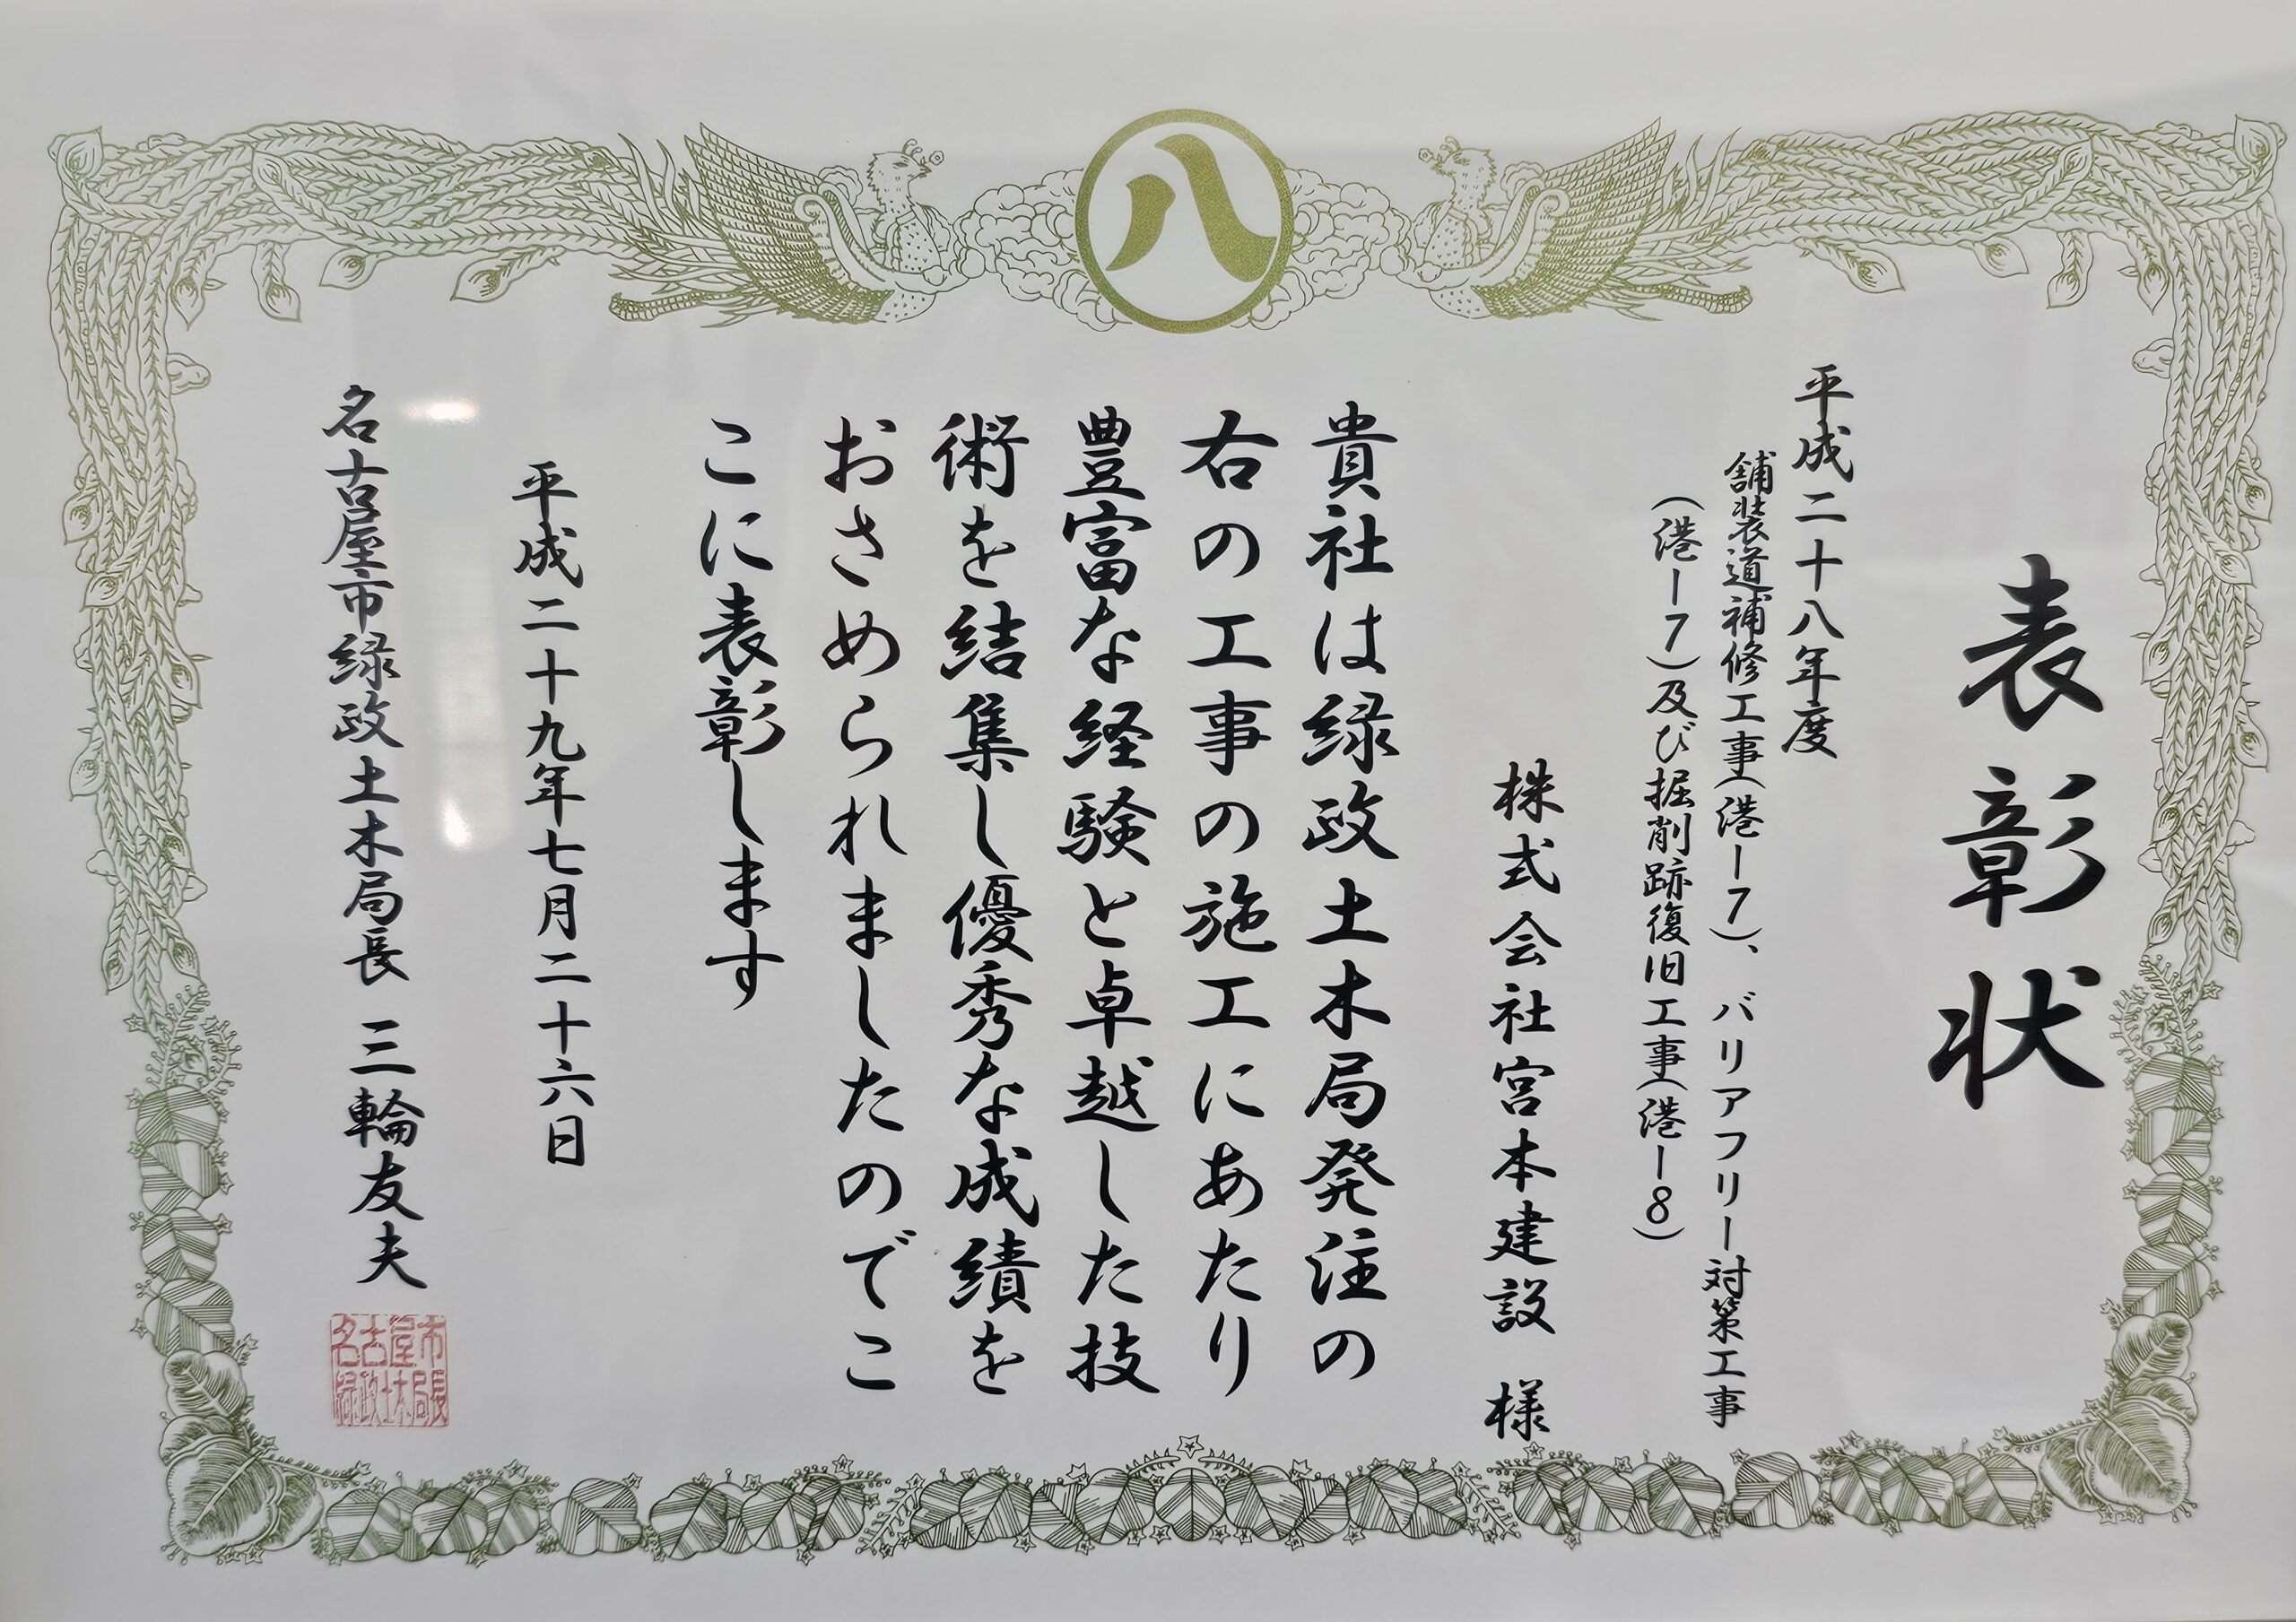 八
表彰状
平成二十八年度
舗装道補修工事(港ー7)、バリアフリー対策工事
(港ー7)及び掘削跡復旧工事(港ー8)
株式会社宮本建設 様
貴社は緑政土木局発注の
右の工事の施工にあたり
豊富な経験と卓越した技
術を結集し優秀な成績を
おさめられましたのでこ
こに表彰します
平成二十九年七月二十六日
名古屋市緑政土木局長 三輪友夫
名古屋市
緑政土木局長